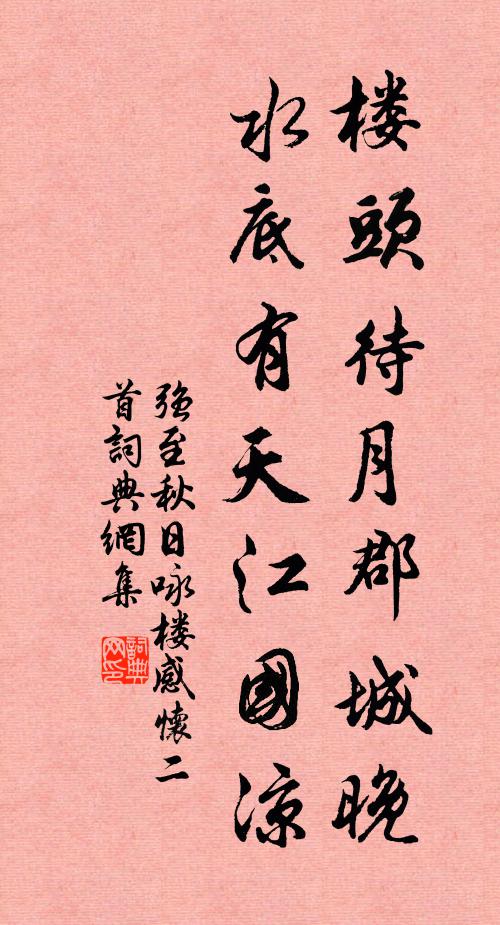 楼頭待月郡城晚
水底有天江國涼
强至秋日咏楼感懷二
首詞典網集
詞典
网印